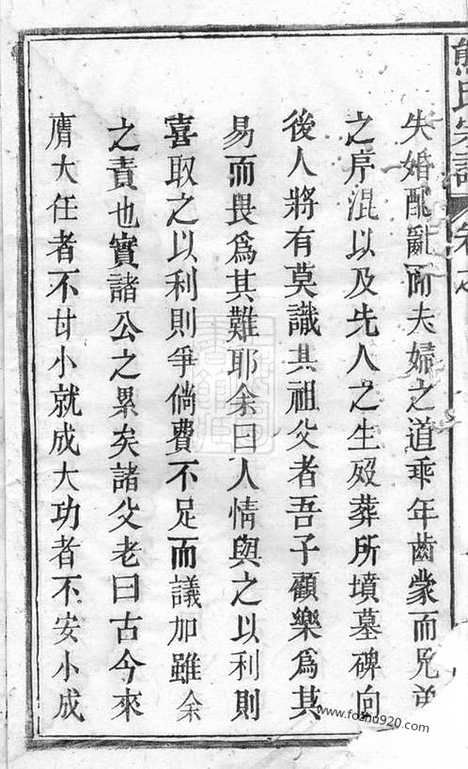 熊氏宗譜 卷之
失婚配亂而夫婦之道乖年齒蒙而兄弟
之序混以及先人之生殁葬所墳墓碑向
後人將有莫識其祖父者吾子顧樂為其
易而畏為其難耶余曰人情與之以利則
喜取之以利則爭倘費不足而議加雖余
之責也實諸公之累矣諸父老曰古今來
膺大任者不甘小就成大功者不安小成
www.foshu920.com